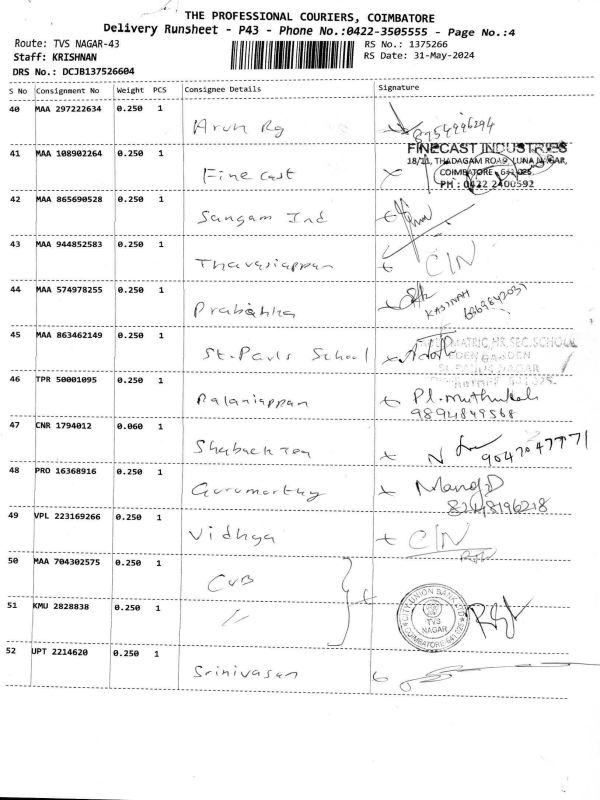 THE PROFESSIONAL COURIERS, COIMBATORE
Delivery Runsheet - P43 - Phone No.:0422-3505555 - Page No.:4
Route: TVS NAGAR-43 RS No.: 1375266
Staff: KRISHNAN RS Date: 31-May-2024
DRS No.: DCJB137526604
S No Consignment No Weight PCS Consignee Details Signature
40 MAA 297222634 0.250 1 Arun Rg
41 MAA 108902264 0.250 1 Fine cast FINECAST INDUSTRIES
18/11, THADAGAM ROAD, LUNA NAGAR,
COIMBATORE - 641 025
PH : 0422 2400592
42 MAA 865690528 0.250 1 Sangam Ind
43 MAA 944852583 0.250 1 Thavasiappan C/N
44 MAA 574978255 0.250 1 Prabahka
45 MAA 863462149 0.250 1 St. Pauls School MATRIC. HR. SEC. SCHOOL
EDEN GARDEN
46 TPR 50001095 0.250 1 Palaniappan Pl. muthukali
9894849568
47 CNR 1794012 0.060 1 9047047771
48 PRO 16368916 0.250 1 Gurumorthy
8248196218
49 VPL 223169266 0.250 1 Vidhya C/N
50 MAA 704302575 0.250 1 CUB
51 KMU 2828838 0.250 1 " CITY UNION BANK LTD
TVS NAGAR
COIMBATORE 641 025
52 UPT 2214620 0.250 1 Srinivasan